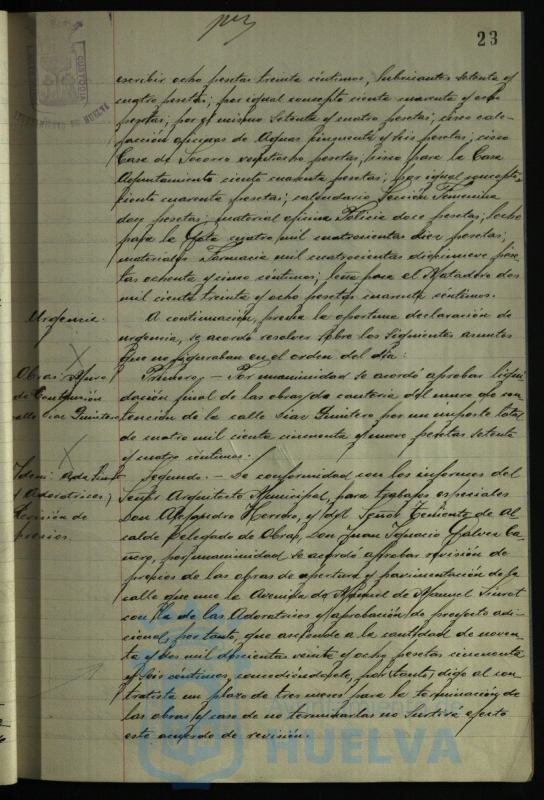 23
CUSTODIA
AYUNTAMIENTO DE HUELVA
escribir ocho pesetas treinta céntimos; lubricantes setenta y
cuatro pesetas; por igual concepto ciento cuarenta y ocho
pesetas; por el mismo setenta y cuatro pesetas; cisco cale-
facción oficinas de Aguas cincuenta y seis pesetas; cisco
Casa de Socorro veintiocho pesetas; cisco para la Casa
Ayuntamiento ciento cuarenta pesetas; por igual concepto
ciento cuarenta pesetas; calendario Sección Femenina
doce pesetas; material oficina Policía doce pesetas; leche
para la Gota cuatro mil cuatrocientas diez pesetas;
materiales Farmacia mil cuatrocientas diecinueve pese-
tas ochenta y cinco céntimos; leña para el Matadero dos
mil ciento treinta y ocho pesetas cuarenta céntimos.
Urgencia.
A continuación, previa la oportuna declaración de
urgencia, se acordó resolver sobre los siguientes asuntos
que no figuraban en el orden del día:
Obras: Muro
de Contención
calle Siac Quintero
Primero.- Por unanimidad se acordó aprobar liqui-
dación final de las obras de del muro de con-
tención de la calle Siac Quintero por un importe total
de cuatro mil ciento cincuenta y nueve pesetas setenta
y cuatro céntimos.
Idem: Avda Siurot
(Adoratrices)
Revisión de
precios.
Segundo.- De conformidad con los informes del
Señor Arquitecto Municipal, para trabajos especiales
Don Alejandro Herrero, y del Señor Teniente de Al
calde Delegado de Obras, Don Juan Ignacio Gálvez Ca-
ñero, por unanimidad se acordó aprobar revisión de
precios de las obras de apertura y pavimentación de la
calle que une la Avenida de Manuel de Manuel Siurot
con la de las Adoratrices y aprobación de proyecto adi-
cional, por tanto, que asciende a la cantidad de noven-
ta y dos mil doscientas veinte y ocho pesetas cincuenta
y seis céntimos, concediéndole, por tanto, digo al con-
tratista un plazo de tres meses para la terminación de
las obras y caso de no terminarlas no surtirá efecto
este acuerdo de revisión.
Ayuntamiento de
HUELVA